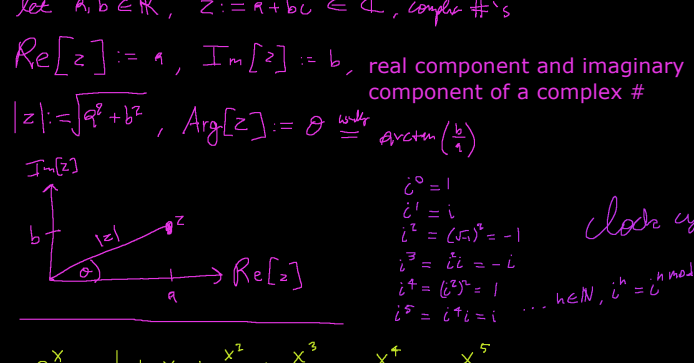 let a, b ∈ ℝ, z := a + bi ∈ ℂ, complex #'s
Re[z] := a, Im[z] := b,
real component and imaginary
component of a complex #
|z| := √(a² + b²), Arg[z] := θ = arctan(b/a)
Im[z]
b
|z|
z
θ
a
Re[z]
i⁰ = 1
i¹ = i
i² = (√-1)² = -1
i³ = i²i = -i
i⁴ = (i²)² = 1
i⁵ = i⁴i = i
... n∈ℕ, iⁿ = i^(n mod
x x² x³ x⁴ x⁵